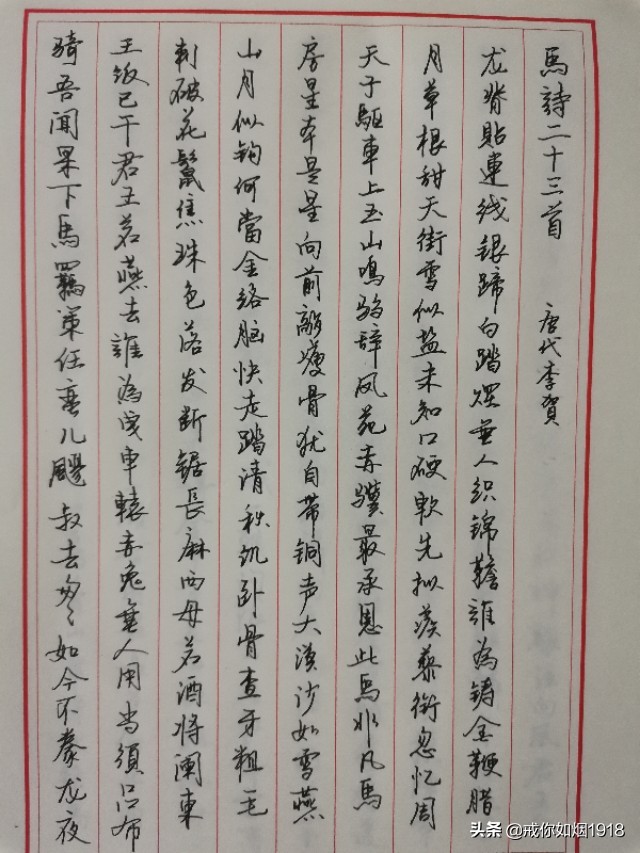 馬詩二十三首 唐代李賀
龙脊貼連线银蹄白踏煙無人织锦韂誰為铸金鞭腊
月草根甜天街雪似盐未知口硬軟先拟蒺藜銜忽忆周
天子驅車上玉山鸣驺辞凤苑赤骥最承恩此馬非凡馬
房星本是星向前敲瘦骨犹自带铜声大漠沙如雪燕
山月似钩何當金络脑快走踏清秋饥卧骨查牙粗毛
刺破花鬣焦珠色落发断锯長麻西母若酒將阑東
王饭已干君王若燕去誰為曳車轅赤兔無人用当須吕布
骑吾闻果下馬羈策任蛮儿飂叔去匆匆如今不豢龙夜
头条 @戒你如烟1918